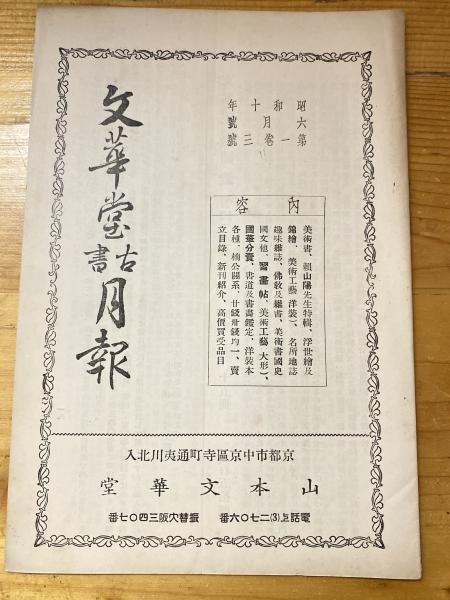 昭和十年
六月號
第一卷三號
文華堂古書月報
內容
美術書、賴山陽先生特輯、浮世繪及
錦繪、美術工藝(洋裝)、名所地誌
趣味雜誌、佛敎及叢書、美術書國史
國文他、習畫帖、美術工藝(大形)、
國華分賣、書道及書畫鑑定、洋裝本
各種、楠公關系、廿錢卅錢均一、賣
立目錄、新刊紹介、高價買受品目
京都市中京區寺町通夷川北入
山本文華堂
電話上(3)二七〇六番 振替大阪三四〇七番